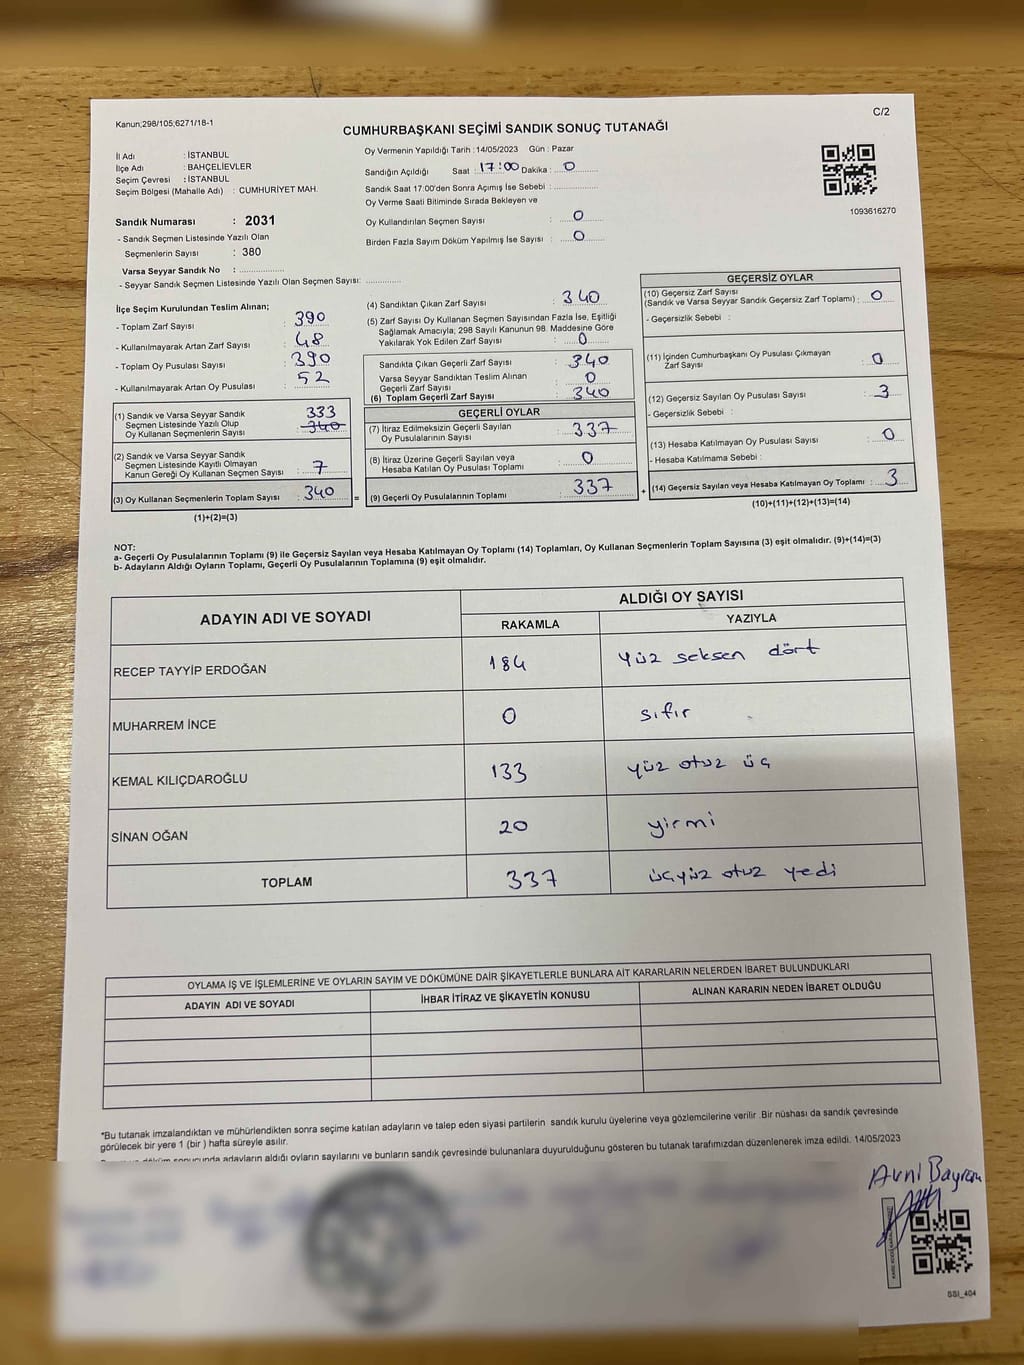 Kanun;298/105;6271/18-1
C/2
CUMHURBAŞKANI SEÇİMİ SANDIK SONUÇ TUTANAĞI
İl Adı : İSTANBUL
İlçe Adı : BAHÇELİEVLER
Seçim Çevresi : İSTANBUL
Seçim Bölgesi (Mahalle Adı) : CUMHURİYET MAH.
Sandık Numarası : 2031
- Sandık Seçmen Listesinde Yazılı Olan
Seçmenlerin Sayısı : 380
Varsa Seyyar Sandık No :
- Seyyar Sandık Seçmen Listesinde Yazılı Olan Seçmen Sayısı:
Oy Vermenin Yapıldığı Tarih : 14/05/2023 Gün : Pazar
Sandığın Açıldığı Saat : 17:00 Dakika : 0
Sandık Saat 17:00'den Sonra Açımış İse Sebebi :
Oy Verme Saati Bitiminde Sırada Bekleyen ve
Oy Kullandırılan Seçmen Sayısı : 0
Birden Fazla Sayım Döküm Yapılmış İse Sayısı : 0
1093616270
İlçe Seçim Kurulundan Teslim Alınan;
- Toplam Zarf Sayısı : 390
- Kullanılmayarak Artan Zarf Sayısı : 48
- Toplam Oy Pusulası Sayısı : 390
- Kullanılmayarak Artan Oy Pusulası : 52
(1) Sandık ve Varsa Seyyar Sandık
Seçmen Listesinde Yazılı Olup
Oy Kullanan Seçmenlerin Sayısı : 333 340
(2) Sandık ve Varsa Seyyar Sandık
Seçmen Listesinde Kayıtlı Olmayan
Kanun Gereği Oy Kullanan Seçmen Sayısı : 7
(3) Oy Kullanan Seçmenlerin Toplam Sayısı : 340
(1)+(2)=(3)
=
(4) Sandıktan Çıkan Zarf Sayısı : 340
(5) Zarf Sayısı Oy Kullanan Seçmen Sayısından Fazla İse, Eşitliği
Sağlamak Amacıyla; 298 Sayılı Kanunun 98. Maddesine Göre
Yakılarak Yok Edilen Zarf Sayısı : 0
Sandıkta Çıkan Geçerli Zarf Sayısı : 340
Varsa Seyyar Sandıktan Teslim Alınan
Geçerli Zarf Sayısı : 0
(6) Toplam Geçerli Zarf Sayısı : 340
GEÇERLİ OYLAR
(7) İtiraz Edilmeksizin Geçerli Sayılan
Oy Pusulalarının Sayısı : 337
(8) İtiraz Üzerine Geçerli Sayılan veya
Hesaba Katılan Oy Pusulası Toplamı : 0
(9) Geçerli Oy Pusulalarının Toplamı : 337
+
GEÇERSİZ OYLAR
(10) Geçersiz Zarf Sayısı
(Sandık ve Varsa Seyyar Sandık Geçersiz Zarf Toplamı) : 0
- Geçersizlik Sebebi :
(11) İçinden Cumhurbaşkanı Oy Pusulası Çıkmayan
Zarf Sayısı : 0
(12) Geçersiz Sayılan Oy Pusulası Sayısı : 3
- Geçersizlik Sebebi :
(13) Hesaba Katılmayan Oy Pusulası Sayısı : 0
- Hesaba Katılmama Sebebi :
(14) Geçersiz Sayılan veya Hesaba Katılmayan Oy Toplamı : 3
(10)+(11)+(12)+(13)=(14)
NOT:
a- Geçerli Oy Pusulalarının Toplamı (9) ile Geçersiz Sayılan veya Hesaba Katılmayan Oy Toplamı (14) Toplamları, Oy Kullanan Seçmenlerin Toplam Sayısına (3) eşit olmalıdır. (9)+(14)=(3)
b- Adayların Aldığı Oyların Toplamı, Geçerli Oy Pusulalarının Toplamına (9) eşit olmalıdır.
ADAYIN ADI VE SOYADI ALDIĞI OY SAYISI
RAKAMLA YAZIYLA
RECEP TAYYİP ERDOĞAN 184 yüz seksen dört
MUHARREM İNCE 0 sıfır
KEMAL KILIÇDAROĞLU 133 yüz otuz üç
SİNAN OĞAN 20 yirmi
TOPLAM 337 üçyüz otuz yedi
OYLAMA İŞ VE İŞLEMLERİNE VE OYLARIN SAYIM VE DÖKÜMÜNE DAİR ŞİKAYETLERLE BUNLARA AİT KARARLARIN NELERDEN İBARET BULUNDUKLARI
ADAYIN ADI VE SOYADI İHBAR İTİRAZ VE ŞİKAYETİN KONUSU ALINAN KARARIN NEDEN İBARET OLDUĞU
*Bu tutanak imzalandıktan ve mühürlendikten sonra seçime katılan adayların ve talep eden siyasi partilerin sandık kurulu üyelerine veya gözlemcilerine verilir .Bir nüshası da sandık çevresinde
görülecek bir yere 1 (bir ) hafta süreyle asılır.
sonucunda adayların aldığı oyların sayılarını ve bunların sandık çevresinde bulunanlara duyurulduğunu gösteren bu tutanak tarafımızdan düzenlenerek imza edildi. 14/05/2023
Avni Bayram
SSI_404